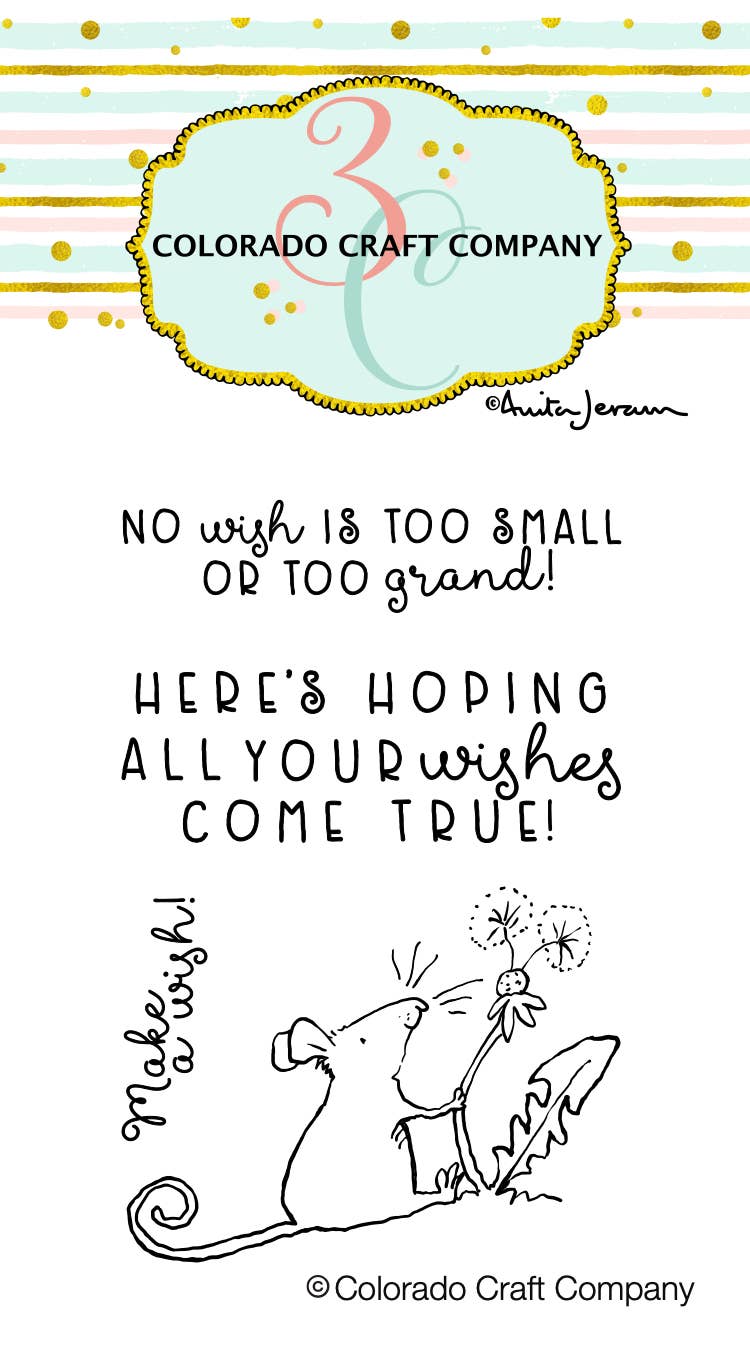 3C
COLORADO CRAFT COMPANY
©Anita Jeram
NO wish IS TOO SMALL
OR TOO grand!
HERE'S HOPING
ALL YOUR wishes
COME TRUE!
Make
a wish!
© Colorado Craft Company